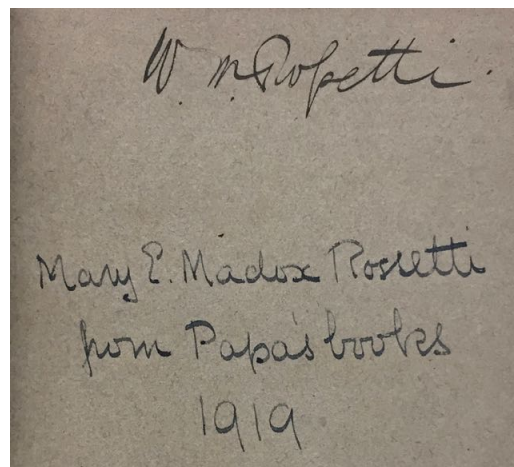 W. M. Rossetti.
Mary E. Madox Rossetti
from Papa's books
1919